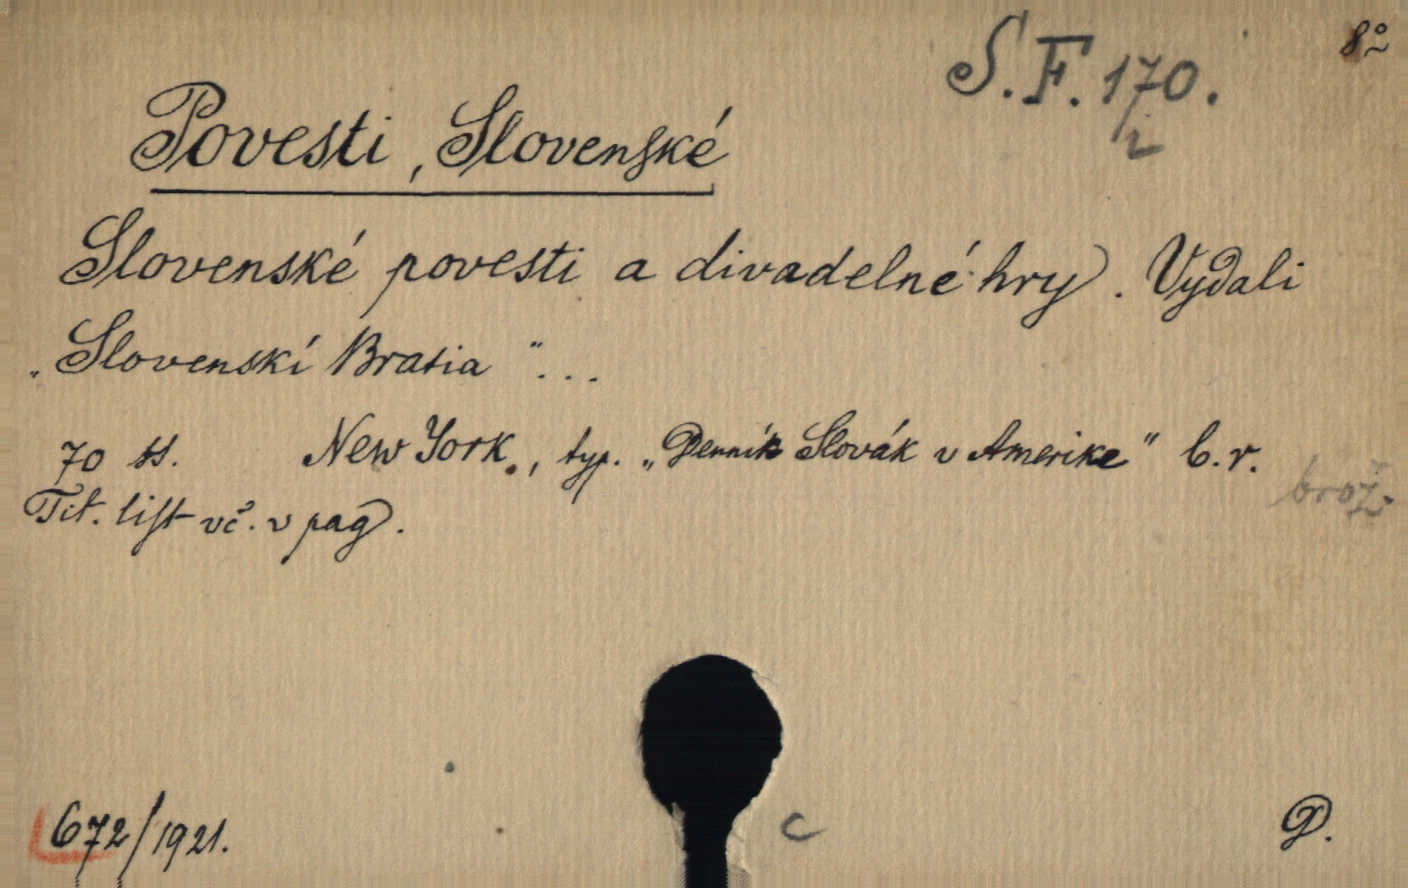 8°
S. F. 170.
i
Povesti, Slovenské
Slovenské povesti a divadelné hry. Vydali
„Slovenskí Bratia“...
70 ss. New York., typ. „Denník Slovák v Amerike“ b. r.
brož.
Tit. list vč. v pag.
672/1921.
c
D.